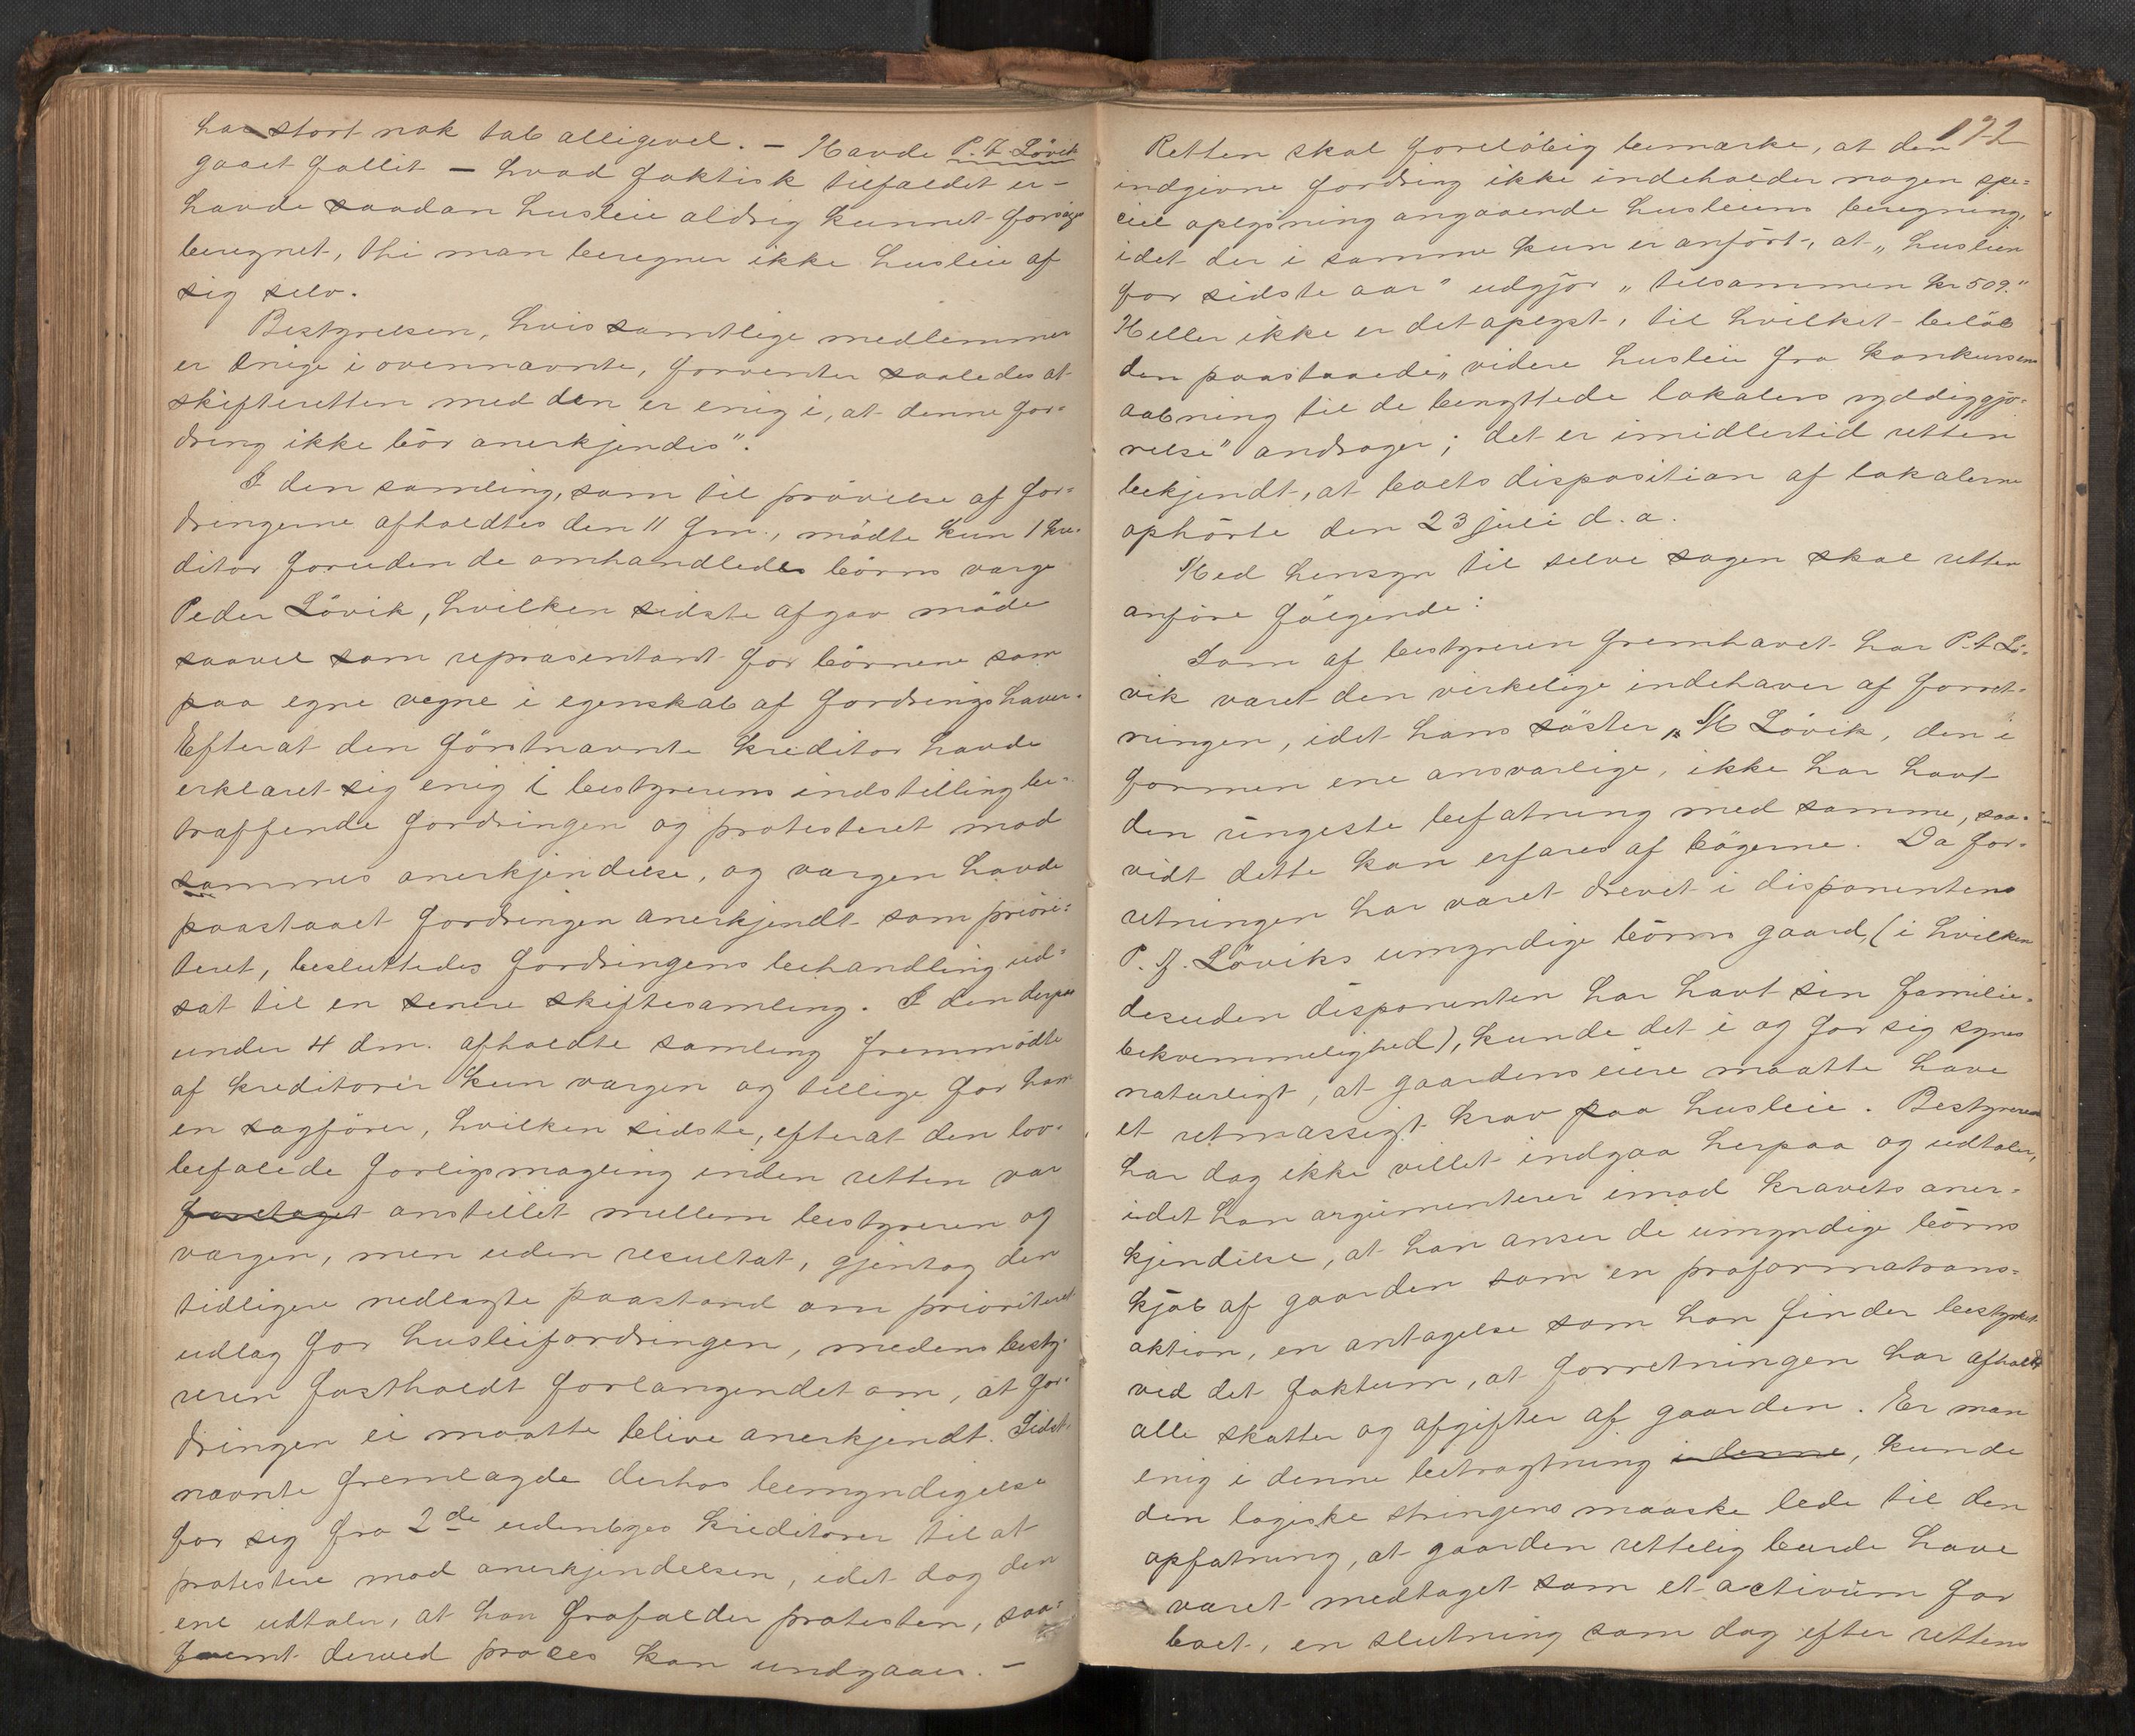 har stort nok tab alligevel. – Havde P. A. Lövik
gaaet fallit – hvad faktisk tilfældet er –
havde saadan husleie aldrig kunnet forsøges
beregnet, thi man beregner ikke husleie af
sig selv.
Bestyrelsen, hvis samtlige medlemmer
er enige i ovennævnte, forventer saaledes at
skifteretten med den er enig i, at denne for=
dring ikke bör anerkjendes".
I den samling, som til prövelse af for=
dringerne afholdtes den 11 f.m., mödte kun 1 kre=
ditor foruden de omhandlede börns værge
Peder Lövik, hvilken sidste afgav möde
saavel som repræsentant for börnene som
paa egne vegne i egenskab af fordringshaver.
Efterat den förstnævnte kreditor havde
erklæret sig enig i bestyrerens indstilling be=
træffende fordringen og protesteret mod
sammes anerkjendelse, og værgen havde
paastaaet fordringen anerkjendt som priori=
teret, besluttedes fordringens behandling ud=
sat til en senere skiftesamling. I den derpaa
under 4 d.m. afholdte samling fremmödte
af kreditorer kun værgen og tillige for ham
en sagförer, hvilken sidste, efterat den lov=
befalede forligsmægling inden retten var
foretaget anstillet mellem bestyreren og
værgen, men uden resultat, gjentog den
tidligere nedlagte paastand om prioriteret
udlæg for husleiefordringen, medens besty=
reren fastholdt forlangendet om, at for=
dringen ei maatte blive anerkjendt. Sidst=
nævnte fremlagde derhos bemyndigelse
for sig fra 2de udenbyes kreditorer til at
protestere mod anerkjendelsen, idet dog den
ene udtaler, at han frafalder protesten, saa=
fremt derved proces kan undgaaes. –
172
Retten skal foreløbig bemærke, at den
indgivne fordring ikke indeholder nogen spe=
ciel oplysning angaaende husleiens beregning,
idet der i samme kun er anfört, at „husleien
for sidste aar" udgjör „tilsammen kr 509."
Heller ikke er det oplyst, til hvilket belöb
den paastaaede „videre husleie fra konkursens
aabning til de benyttede lokalers ryddiggjö=
relse" andrager; det er imidlertid retten
bekjendt, at boets disposition af lokalerne
ophörte den 23 juli d.a.
Med hensyn til selve sagen skal retten
anföre fölgende:
Som af bestyreren fremhævet har P. A. Lö=
vik været den virkelige indehaver af forret=
ningen, idet hans söster, M Lövik, den i
formen ene ansvarlige, ikke har havt
den ringeste befatning med samme, saa=
vidt dette kan erfares af bögerne. Da for=
retningen har været drevet i disponentens
P. A. Löviks umyndige börns gaard, (i hvilken
desuden disponenten har havt sin familie=
bekvemmelighed), kunde det i og for sig synes
naturligt, at gaardens eiere maatte have
et retmæssigt krav paa husleie. Bestyreren
har dog ikke villet indgaa herpaa og udtaler,
idet han argumenterer imod kravets aner=
kjendelse, at han anser de umyndige börns
kjöb af gaarden som en proformatrans=
aktion, en antagelse som han finder bestyrket
ved det faktum, at forretningen har afholdt
alle skatter og afgifter af gaarden. Er man
enig i denne betragtning i denne, kunde
den logiske stringens maaske lede til den
opfatning, at gaarden rettelig burde have
været medtaget som et activum for
boet, en slutning som dog efter rettens